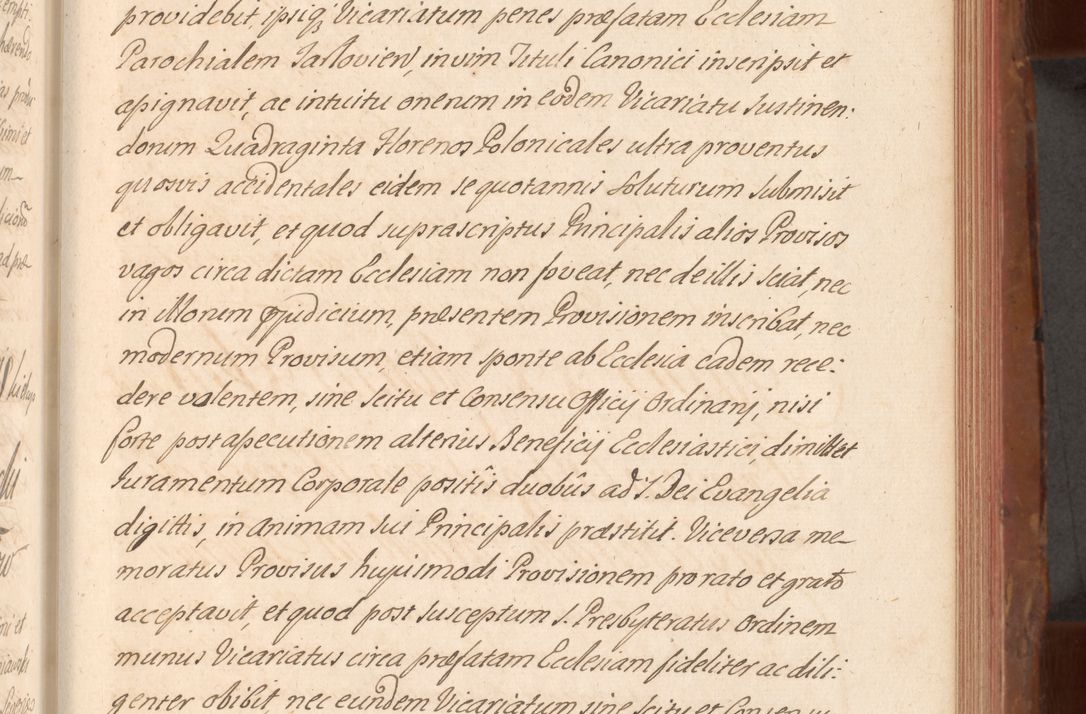 providebit, ipsiq; Vicariatum penes præfatam Ecclesiam
Parochialem Jarlovien, in vim Tituli Canonici inscripsit et
assignavit, ac intuitu onerum in eodem Vicariatu sustinen:
dorum Quadraginta Florenos Polonicales ultra proventus
quosvis accidentales eidem se quotannis soluturum submisit
et obligavit, et quod suprascriptus Principalis alios Provisos
vagos circa dictam Ecclesiam non foveat, nec de illis sciat, nec
in illorum præjudicium, præsentem Provisionem inscribat, nec
modernum Provisum, etiam sponte ab Ecclesia eadem rece:
dere volentem, sine scitu et Consensu Officij Ordinarij, nisi
forte post assecutionem alterius Beneficij Ecclesiastici, dimittet
Juramentum Corporale positis duobus ad S. Dei Evangelia
digittis, in animam sui Principalis præstitit. Viceversa me
moratus Provisus hujusmodi Provisionem pro rato et grato
acceptavit, et quod post susceptum S. Presbyteratus Ordinem
munus Vicariatus circa præfatam Ecclesiam fideliter ac dili:
genter obibit, nec eundem Vicariatum sine scitu et Consensu